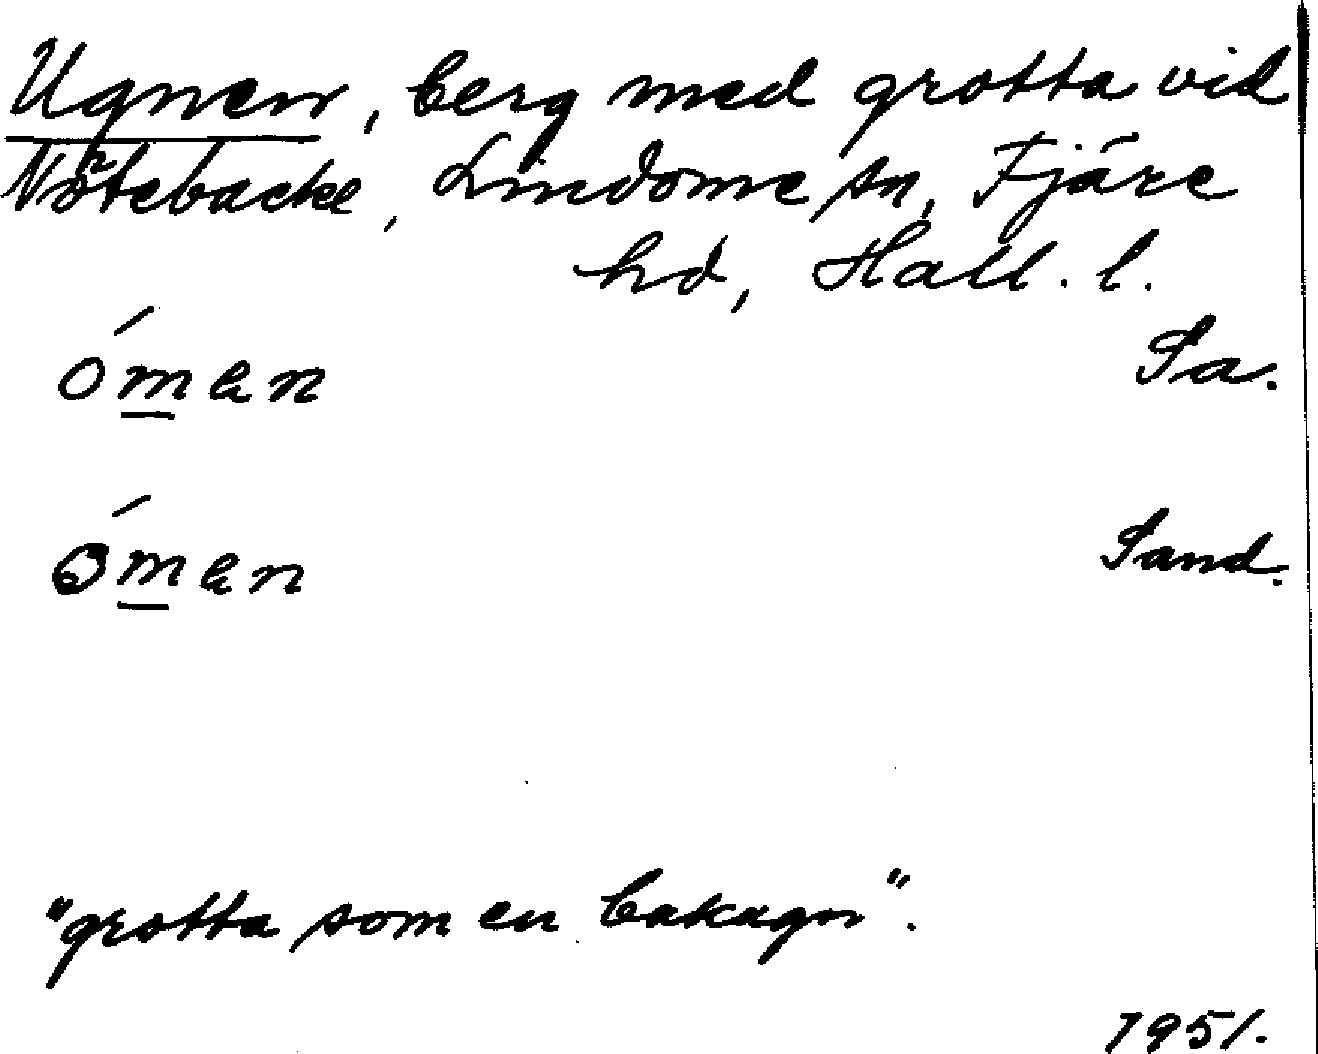 Ugnen, berg med grotta vid
Nötebacke, Lindome sn, Fjäre
hd, Hall. l.
óman Sa.
óman Sand.
"grotta som en bakugn".
1951.